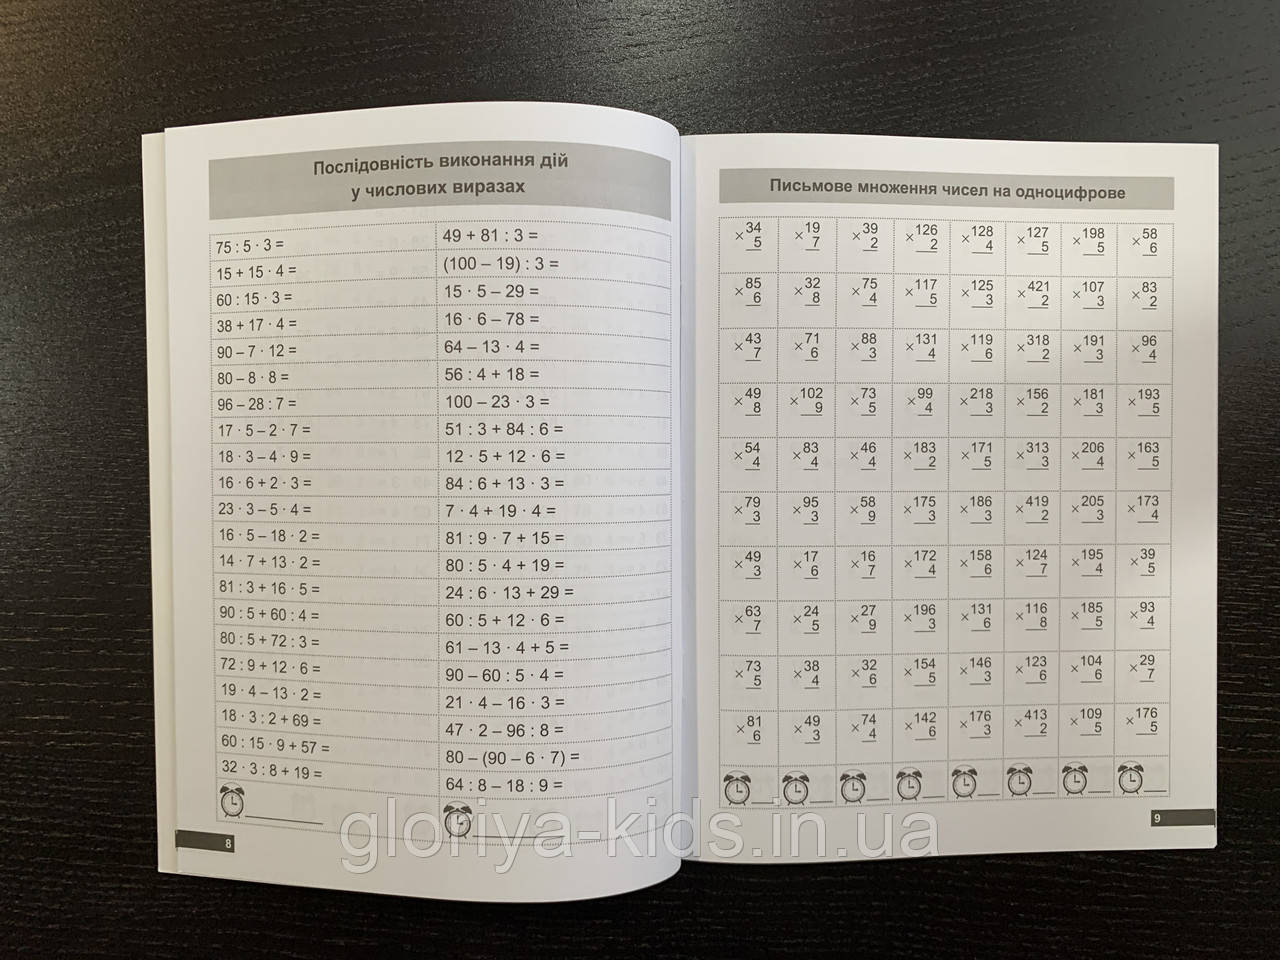 Послідовність виконання дій
у числових виразах
75 : 5 · 3 =
15 + 15 · 4 =
60 : 15 · 3 =
38 + 17 · 4 =
90 – 7 · 12 =
80 – 8 · 8 =
96 – 28 : 7 =
17 · 5 – 2 · 7 =
18 · 3 – 4 · 9 =
16 · 6 + 2 · 3 =
23 · 3 – 5 · 4 =
16 · 5 – 18 · 2 =
14 · 7 + 13 · 2 =
81 : 3 + 16 · 5 =
90 : 5 + 60 : 4 =
80 : 5 + 72 : 3 =
72 : 9 + 12 · 6 =
19 · 4 – 13 · 2 =
18 · 3 : 2 + 69 =
60 : 15 · 9 + 57 =
32 · 3 : 8 + 19 =
49 + 81 : 3 =
(100 – 19) : 3 =
15 · 5 – 29 =
16 · 6 – 78 =
64 – 13 · 4 =
56 : 4 + 18 =
100 – 23 · 3 =
51 : 3 + 84 : 6 =
12 · 5 + 12 · 6 =
84 : 6 + 13 · 3 =
7 · 4 + 19 · 4 =
81 : 9 · 7 + 15 =
80 : 5 · 4 + 19 =
24 : 6 · 13 + 29 =
60 : 5 + 12 · 6 =
61 – 13 · 4 + 5 =
90 – 60 : 5 · 4 =
21 · 4 – 16 · 3 =
47 · 2 – 96 : 8 =
80 – (90 – 6 · 7) =
64 : 8 – 18 : 9 =
8
Письмове множення чисел на одноцифрове
×34 ×19 ×39 ×126 ×128 ×127 ×198 ×58
5 7 2 2 4 5 5 6
×85 ×32 ×75 ×117 ×125 ×421 ×107 ×83
6 8 4 5 3 2 3 2
×43 ×71 ×88 ×131 ×119 ×318 ×191 ×96
7 6 3 4 6 2 3 4
×49 ×102 ×73 ×99 ×218 ×156 ×181 ×193
8 9 5 4 3 2 3 5
×54 ×83 ×46 ×183 ×171 ×313 ×206 ×163
4 4 4 2 5 3 4 5
×79 ×95 ×58 ×175 ×186 ×419 ×205 ×173
3 3 9 3 3 2 3 4
×49 ×17 ×16 ×172 ×158 ×124 ×195 ×39
3 6 7 4 6 7 4 5
×63 ×24 ×27 ×196 ×131 ×116 ×185 ×93
7 5 9 3 6 8 5 4
×73 ×38 ×32 ×154 ×146 ×123 ×104 ×29
5 4 6 5 3 6 6 7
×81 ×49 ×74 ×142 ×176 ×413 ×109 ×176
6 3 4 6 3 2 5 5
9
gloriya-kids.in.ua